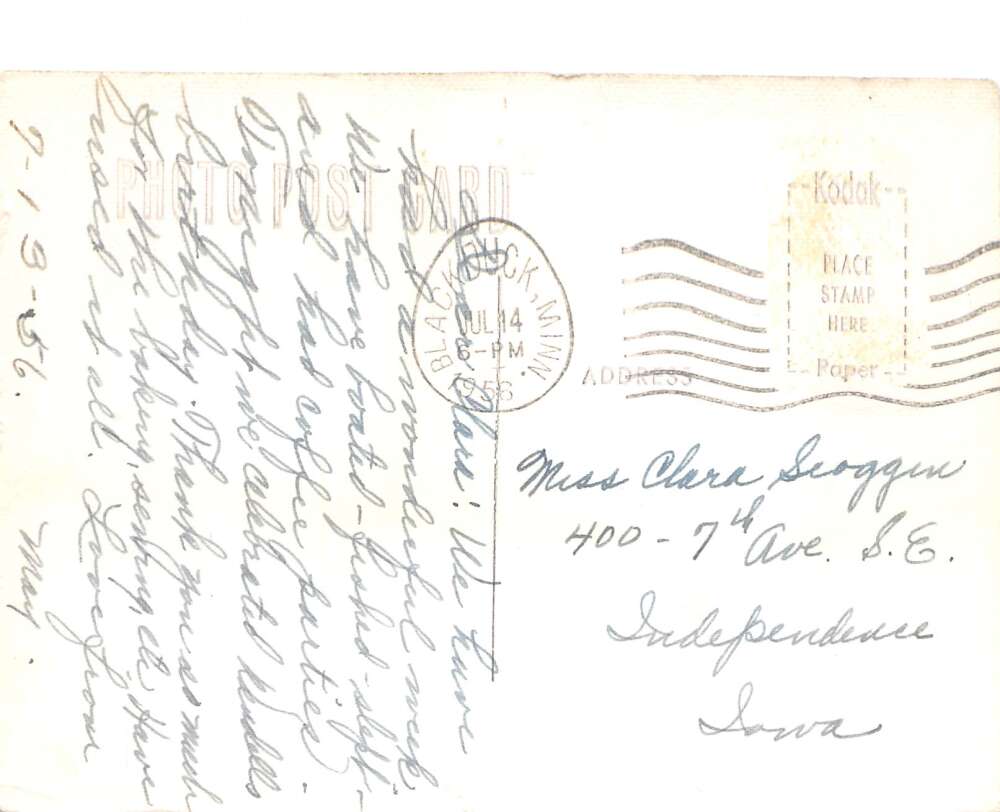 PHOTO POST CARD
Dear Clara: We have
had a wonderful week.
We have boated - fished - slept -
and had coffee parties.
Tonight we celebrated Wendells
birthday. Thank you so much
for the baking, sending, etc. Have
used it all. Love from
7-13-56. May.
BLACKDUCK, MINN.
JUL 14
6-PM
1956
Kodak
PLACE
STAMP
HERE
Paper
ADDRESS
Miss Clara Scoggin
400 - 7th Ave. S.E.
Independence
Iowa